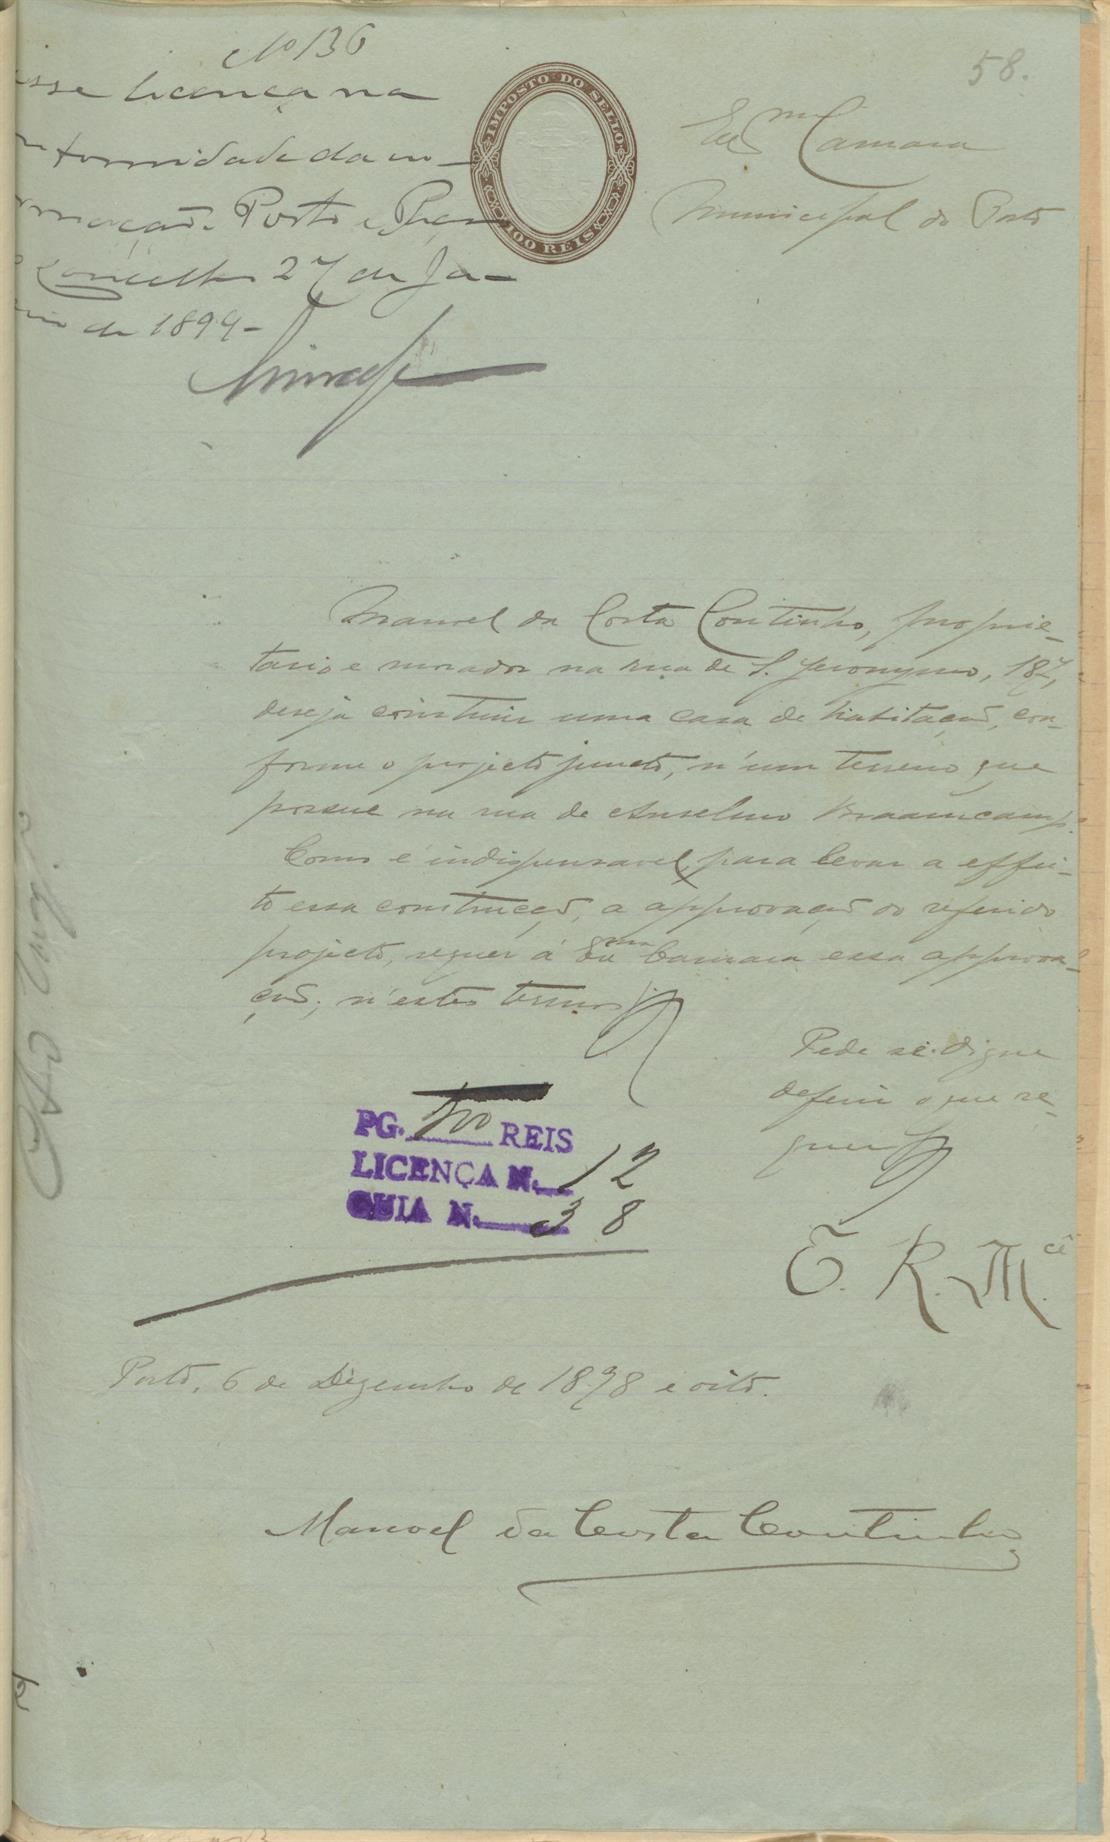 Nº 136
58.
licença na
formidade da in-
mação. Porto e Paços
Concelho 27 de Ja-
de 1899-
IMPOSTO DO SELLO
100 REIS
Exma Camara
Municipal do Porto
Manoel da Costa Coutinho, proprie-
tario e morador na rua de S. Jeronymo, 187,
deseja construir uma casa de habitação, con-
forme o projecto juncto, n'um terreno que
possue na rua de Anselmo Braamcamp.
Como é indispensavel, para levar a effei-
to essa construcção, a approvação do referido
projecto, requer á Exma Camara essa approva-
ção; n'estes termos
Pede se digne
deferir o que re-
quer
PG. 500 REIS
LICENÇA N. 12
GUIA N. 38
E. R. M.cê
Porto, 6 de Dezembro de 1898 e oito.
Manoel da Costa Coutinho